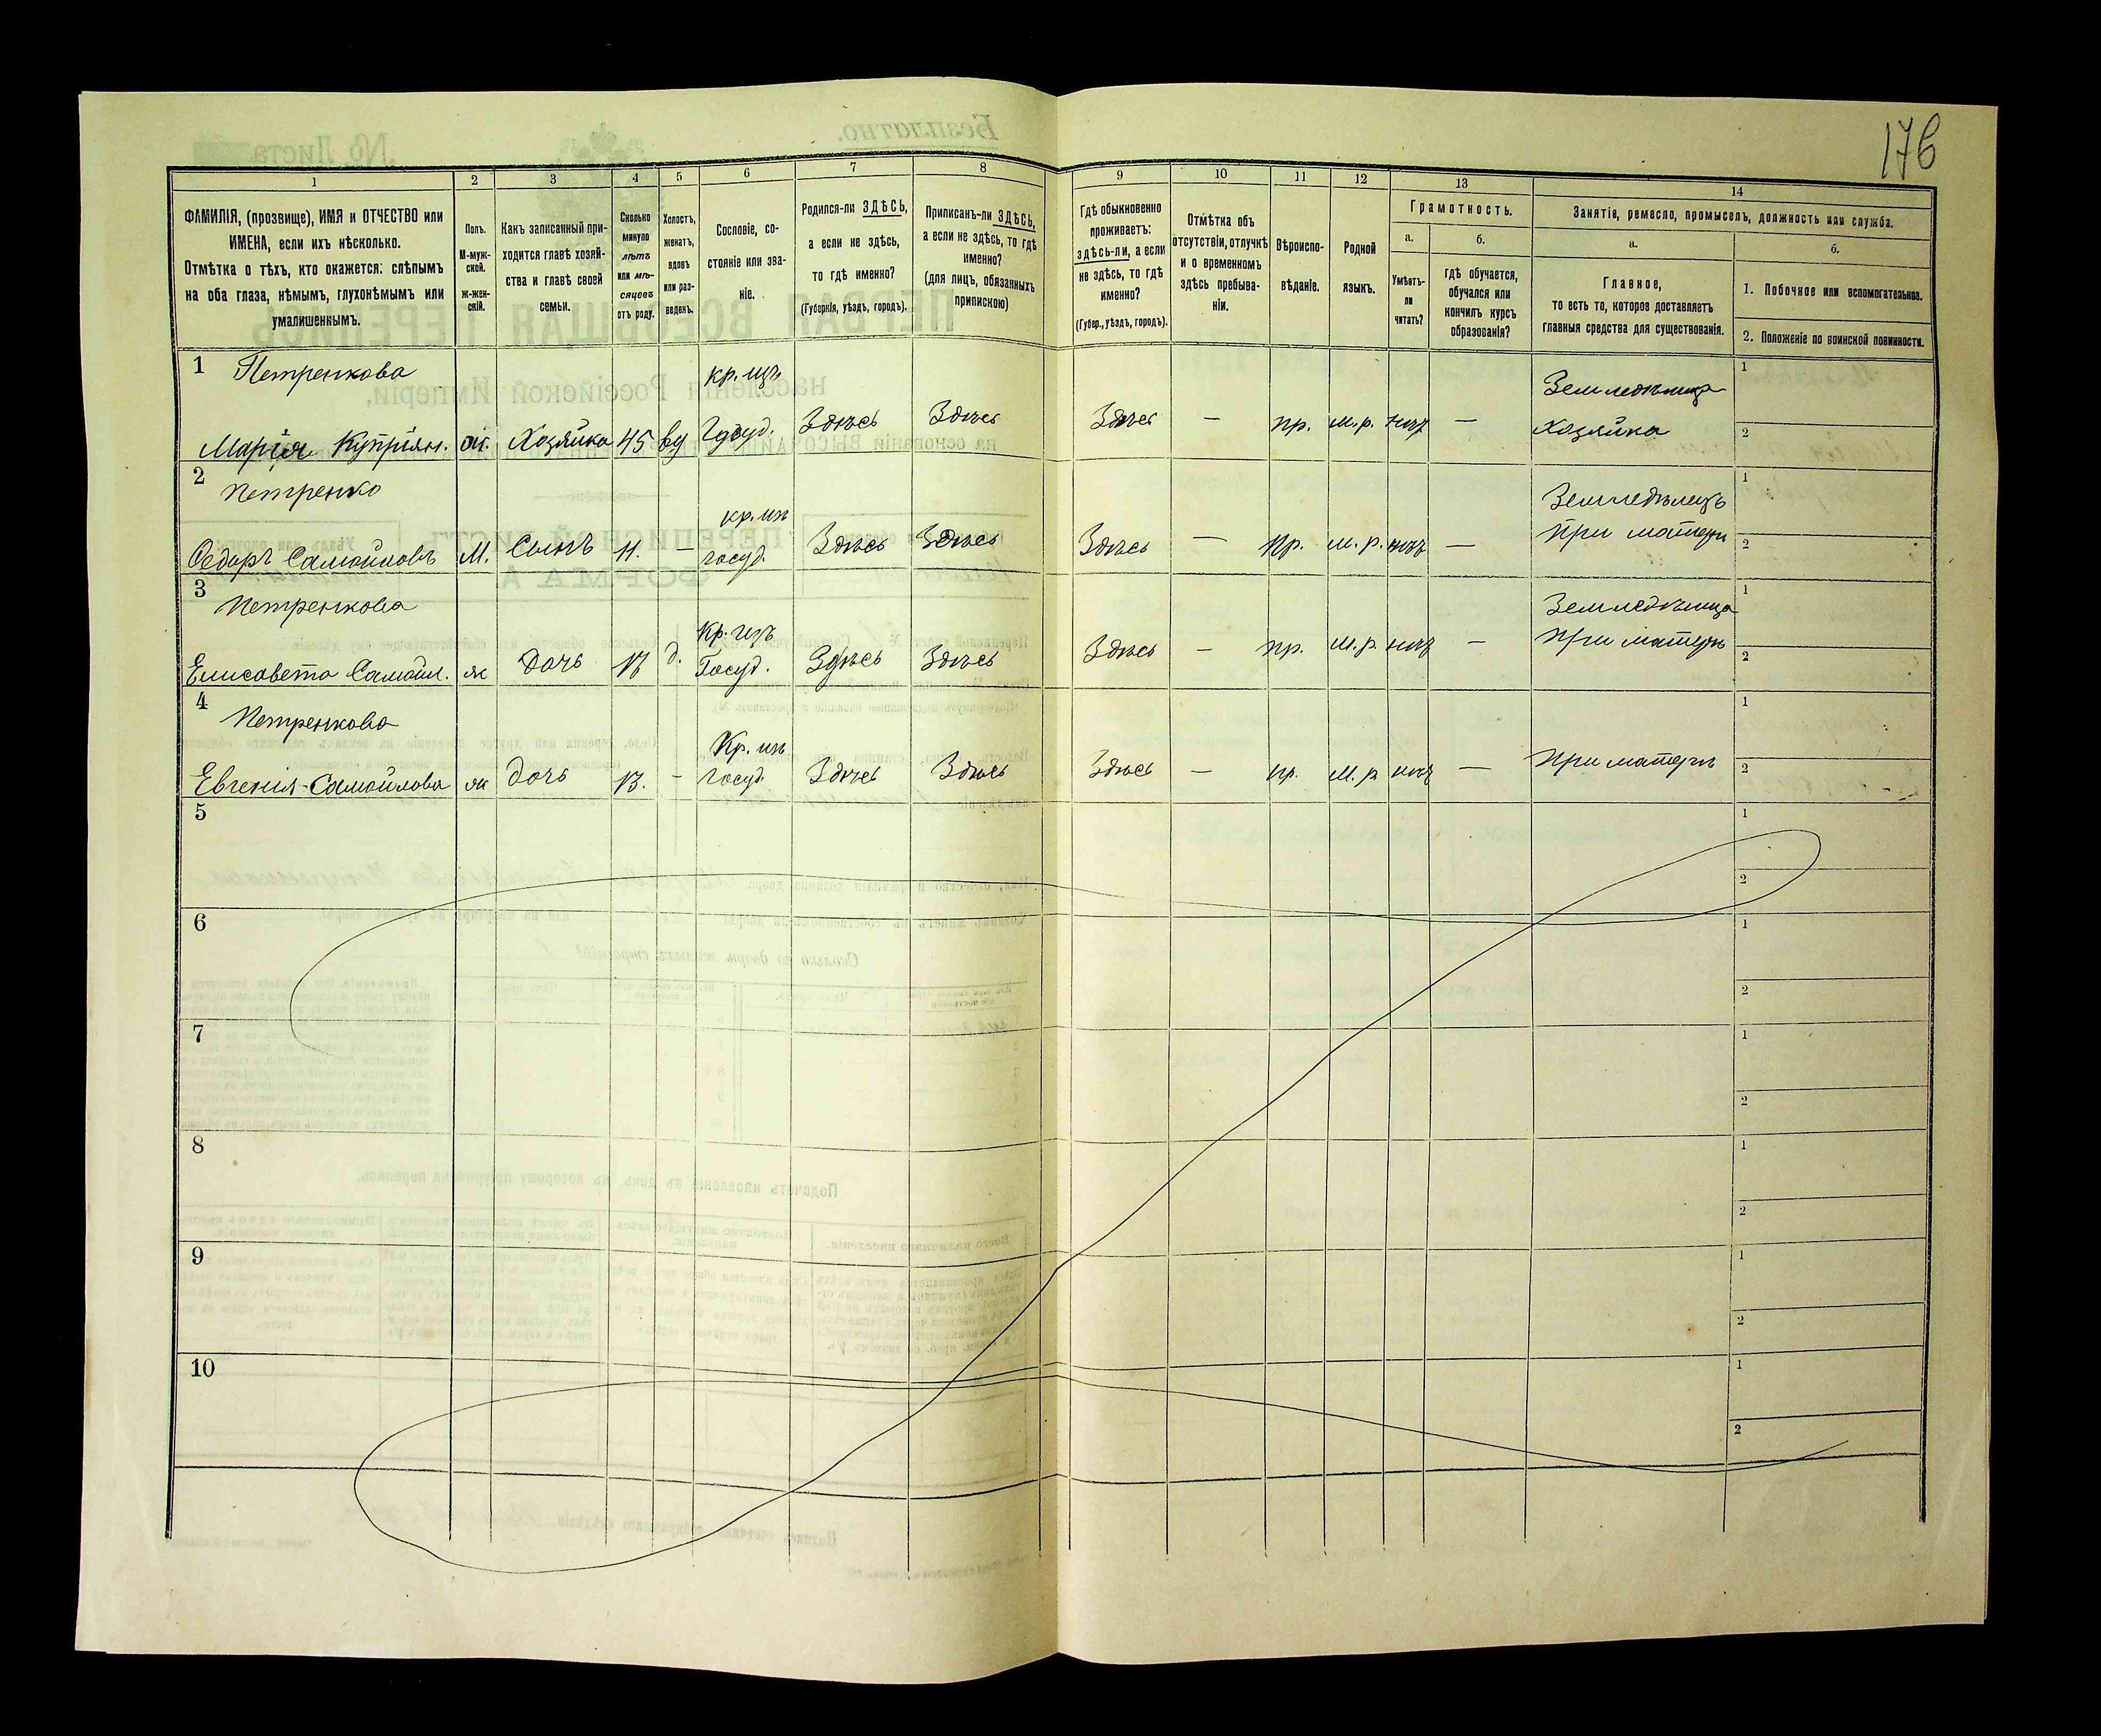 176
1 2 3 4 5 6 7 8 9 10 11 12 13 14
ФАМИЛІЯ, (прозвище), ИМЯ и ОТЧЕСТВО или
ИМЕНА, если ихъ нѣсколько.
Отмѣтка о тѣхъ, кто окажется: слѣпымъ
на оба глаза, нѣмымъ, глухонѣмымъ или
умалишеннымъ.
Полъ.
М-муж-
ской.
Ж-жен-
скій.
Какъ записанный при-
ходится главѣ хозяй-
ства и главѣ своей
семьи.
Сколько
минуло
лѣтъ
или мѣ-
сяцевъ
отъ роду.
Холостъ,
женатъ,
вдовъ
или раз-
веденъ.
Сословіе, со-
стояніе или зва-
ніе.
Родился-ли ЗДѢСЬ,
а если не здѣсь,
то гдѣ именно?
(Губернія, уѣздъ, городъ).
Приписанъ-ли ЗДѢСЬ,
а если не здѣсь, то гдѣ
именно?
(для лицъ, обязанныхъ
припискою)
Гдѣ обыкновенно
проживаетъ:
здѣсь-ли, а если
не здѣсь, то гдѣ
именно?
(Губер., уѣздъ, городъ).
Отмѣтка объ
отсутствіи, отлучкѣ
и о временномъ
здѣсь пребыва-
ніи.
Вѣроиспо-
вѣданіе.
Родной
языкъ.
Грамотность.
а.
Умѣетъ-
ли
читать?
б.
гдѣ обучается,
обучался или
кончилъ курсъ
образованія?
Занятіе, ремесло, промыселъ, должность или служба.
а.
Главное,
то есть то, которое доставляетъ
главныя средства для существованія.
б.
1. Побочное или вспомогательное.
2. Положеніе по воинской повинности.
1 Петренкова кр. изъ Земледѣлица 1
Марія Купріян. ж. Хозяйка 45 вд Госуд. Здѣсь Здѣсь Здѣсь — пр. м.р. нѣтъ — хозяйка 2
2 Петренко кр. изъ Земледѣлецъ 1
Ѳедоръ Самойловъ М. Сынъ 11. — госуд. Здѣсь Здѣсь Здѣсь — пр. м.р. нѣтъ — при матери 2
3 Петренкова Кр. изъ Земледѣлица 1
Елисавета Самойл. ж Дочь 17 д. Госуд. Здѣсь Здѣсь Здѣсь — пр. м.р. нѣтъ — при матери 2
4 Петренкова Кр. изъ 1
Евгенія Самойлова ж дочь 13. — госуд. Здѣсь Здѣсь Здѣсь — пр. м.р. нѣтъ — при матери 2
5 1
2
6 1
2
7 1
2
8 1
2
9 1
2
10 1
2